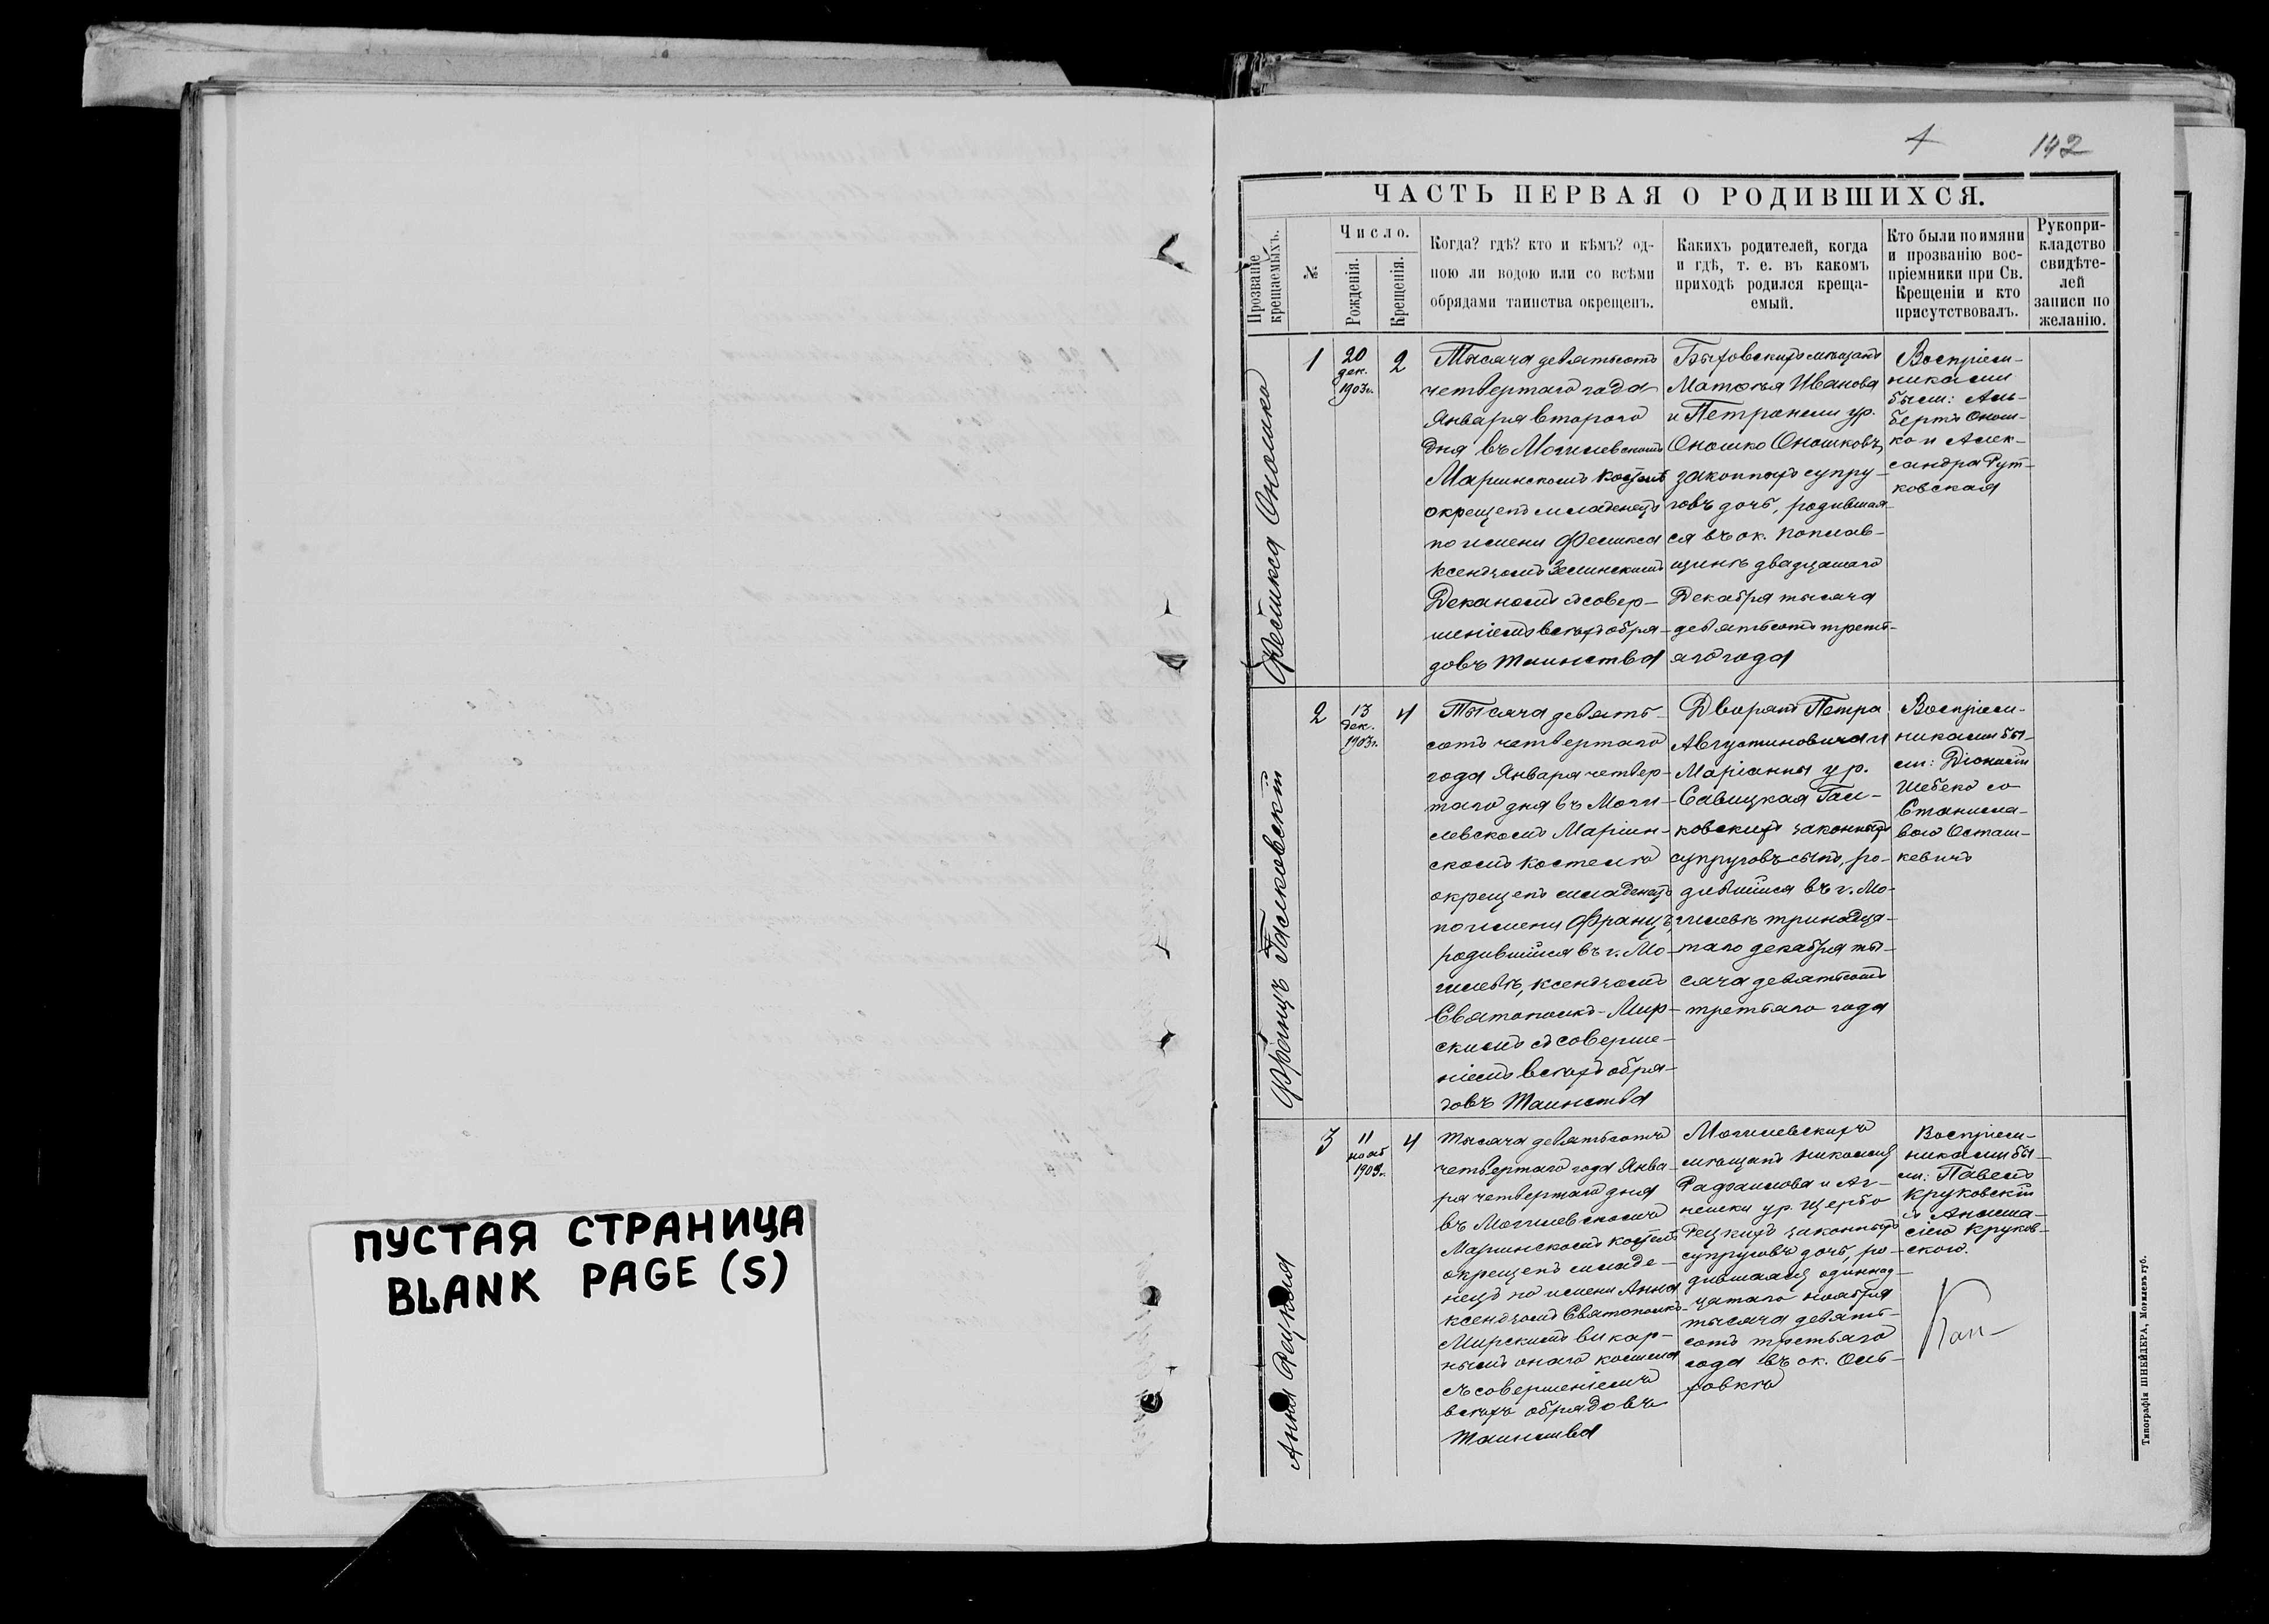 ПУСТАЯ СТРАНИЦА
BLANK PAGE (S)
142
ЧАСТЬ ПЕРВАЯ О РОДИВШИХСЯ.
Прозваніе
крещаемыхъ.
№
Число.
Рожденія.
Крещенія.
Когда? гдѣ? кто и кѣмъ? од-
ною ли водою или со всѣми
обрядами таинства окрещенъ.
Какихъ родителей, когда
и гдѣ, т. е. въ какомъ
приходѣ родился креща-
емый.
Кто были по имяни
и прозванію вос-
пріемники при Св.
Крещеніи и кто
присутствовалъ.
Рукопри-
кладство
свидѣте-
лей
записи по
желанію.
Феликса Оношко
1
20
дек.
1903г.
2
Тысяча девятьсотъ
четвертаго года
Января второго
дня въ Могилевскомъ
Маріинскомъ костелѣ
окрещенъ младенецъ
по имени Феликса
ксендзомъ Зелинскимъ
Деканомъ съ совер-
шеніемъ всѣхъ обря-
довъ Таинства
Быховскихъ мѣщанъ
Матѳѣя Иванова
и Петронели ур.
Оношко Оношковъ,
законныхъ супру-
говъ дочь, родившая-
ся въ ок. Поплав-
щинѣ двадцатаго
Декабря тысяча
девятьсотъ треть-
яго года
Воспріем-
никами
были: Аль-
бертъ Онош-
ко и Алек-
сандра Рут-
ковская
Францъ Галковскій
2
13
дек.
1903г.
4
Тысяча девять-
сотъ четвертаго
года Января четвер-
таго дня въ Моги-
левскомъ Маріин-
скомъ костелѣ
окрещенъ младенецъ
по имени Францъ,
родившійся въ г. Мо-
гилевѣ, ксендзомъ
Святополкъ-Мир-
скимъ съ соверше-
ніемъ всѣхъ обря-
довъ Таинства
Дворянъ Петра
Августиновича и
Маріанны ур.
Савицкая Гал-
ковскихъ законныхъ
супруговъ сынъ, ро-
дившійся въ г. Мо-
гилевѣ тринадца-
таго декабря ты-
сяча девятьсотъ
третьяго года
Воспріем-
никами бы-
ли: Діонисій
Шебеко со
Станисла-
вою Осташ-
кевичъ
Анна Рацкая
3
11
нояб
1903г.
4
Тысяча девятьсотъ
четвертаго года Янва-
ря четвертаго дня
въ Могилевскомъ
Маріинскомъ костелѣ
окрещенъ младе-
нецъ по имени Анна
ксендзомъ Святополкъ-
Мирскимъ викар-
нымъ онаго костела
съ совершеніемъ
всѣхъ обрядовъ
Таинства
Могилевскихъ
мѣщанъ Николая
Рафаилова и Аг-
нешки ур. Щербо
Рецкихъ законныхъ
супруговъ дочь, ро-
дившаяся одиннад-
цатаго ноября
тысяча девять-
сотъ третьяго
года въ ок. Оль-
ховкѣ
Воспріем-
никами бы-
ли: Павелъ
Круковскій
съ Анаста-
сіею Круков-
скою.
Типографія ШНЕЙДЕРА, Могилевъ губ.